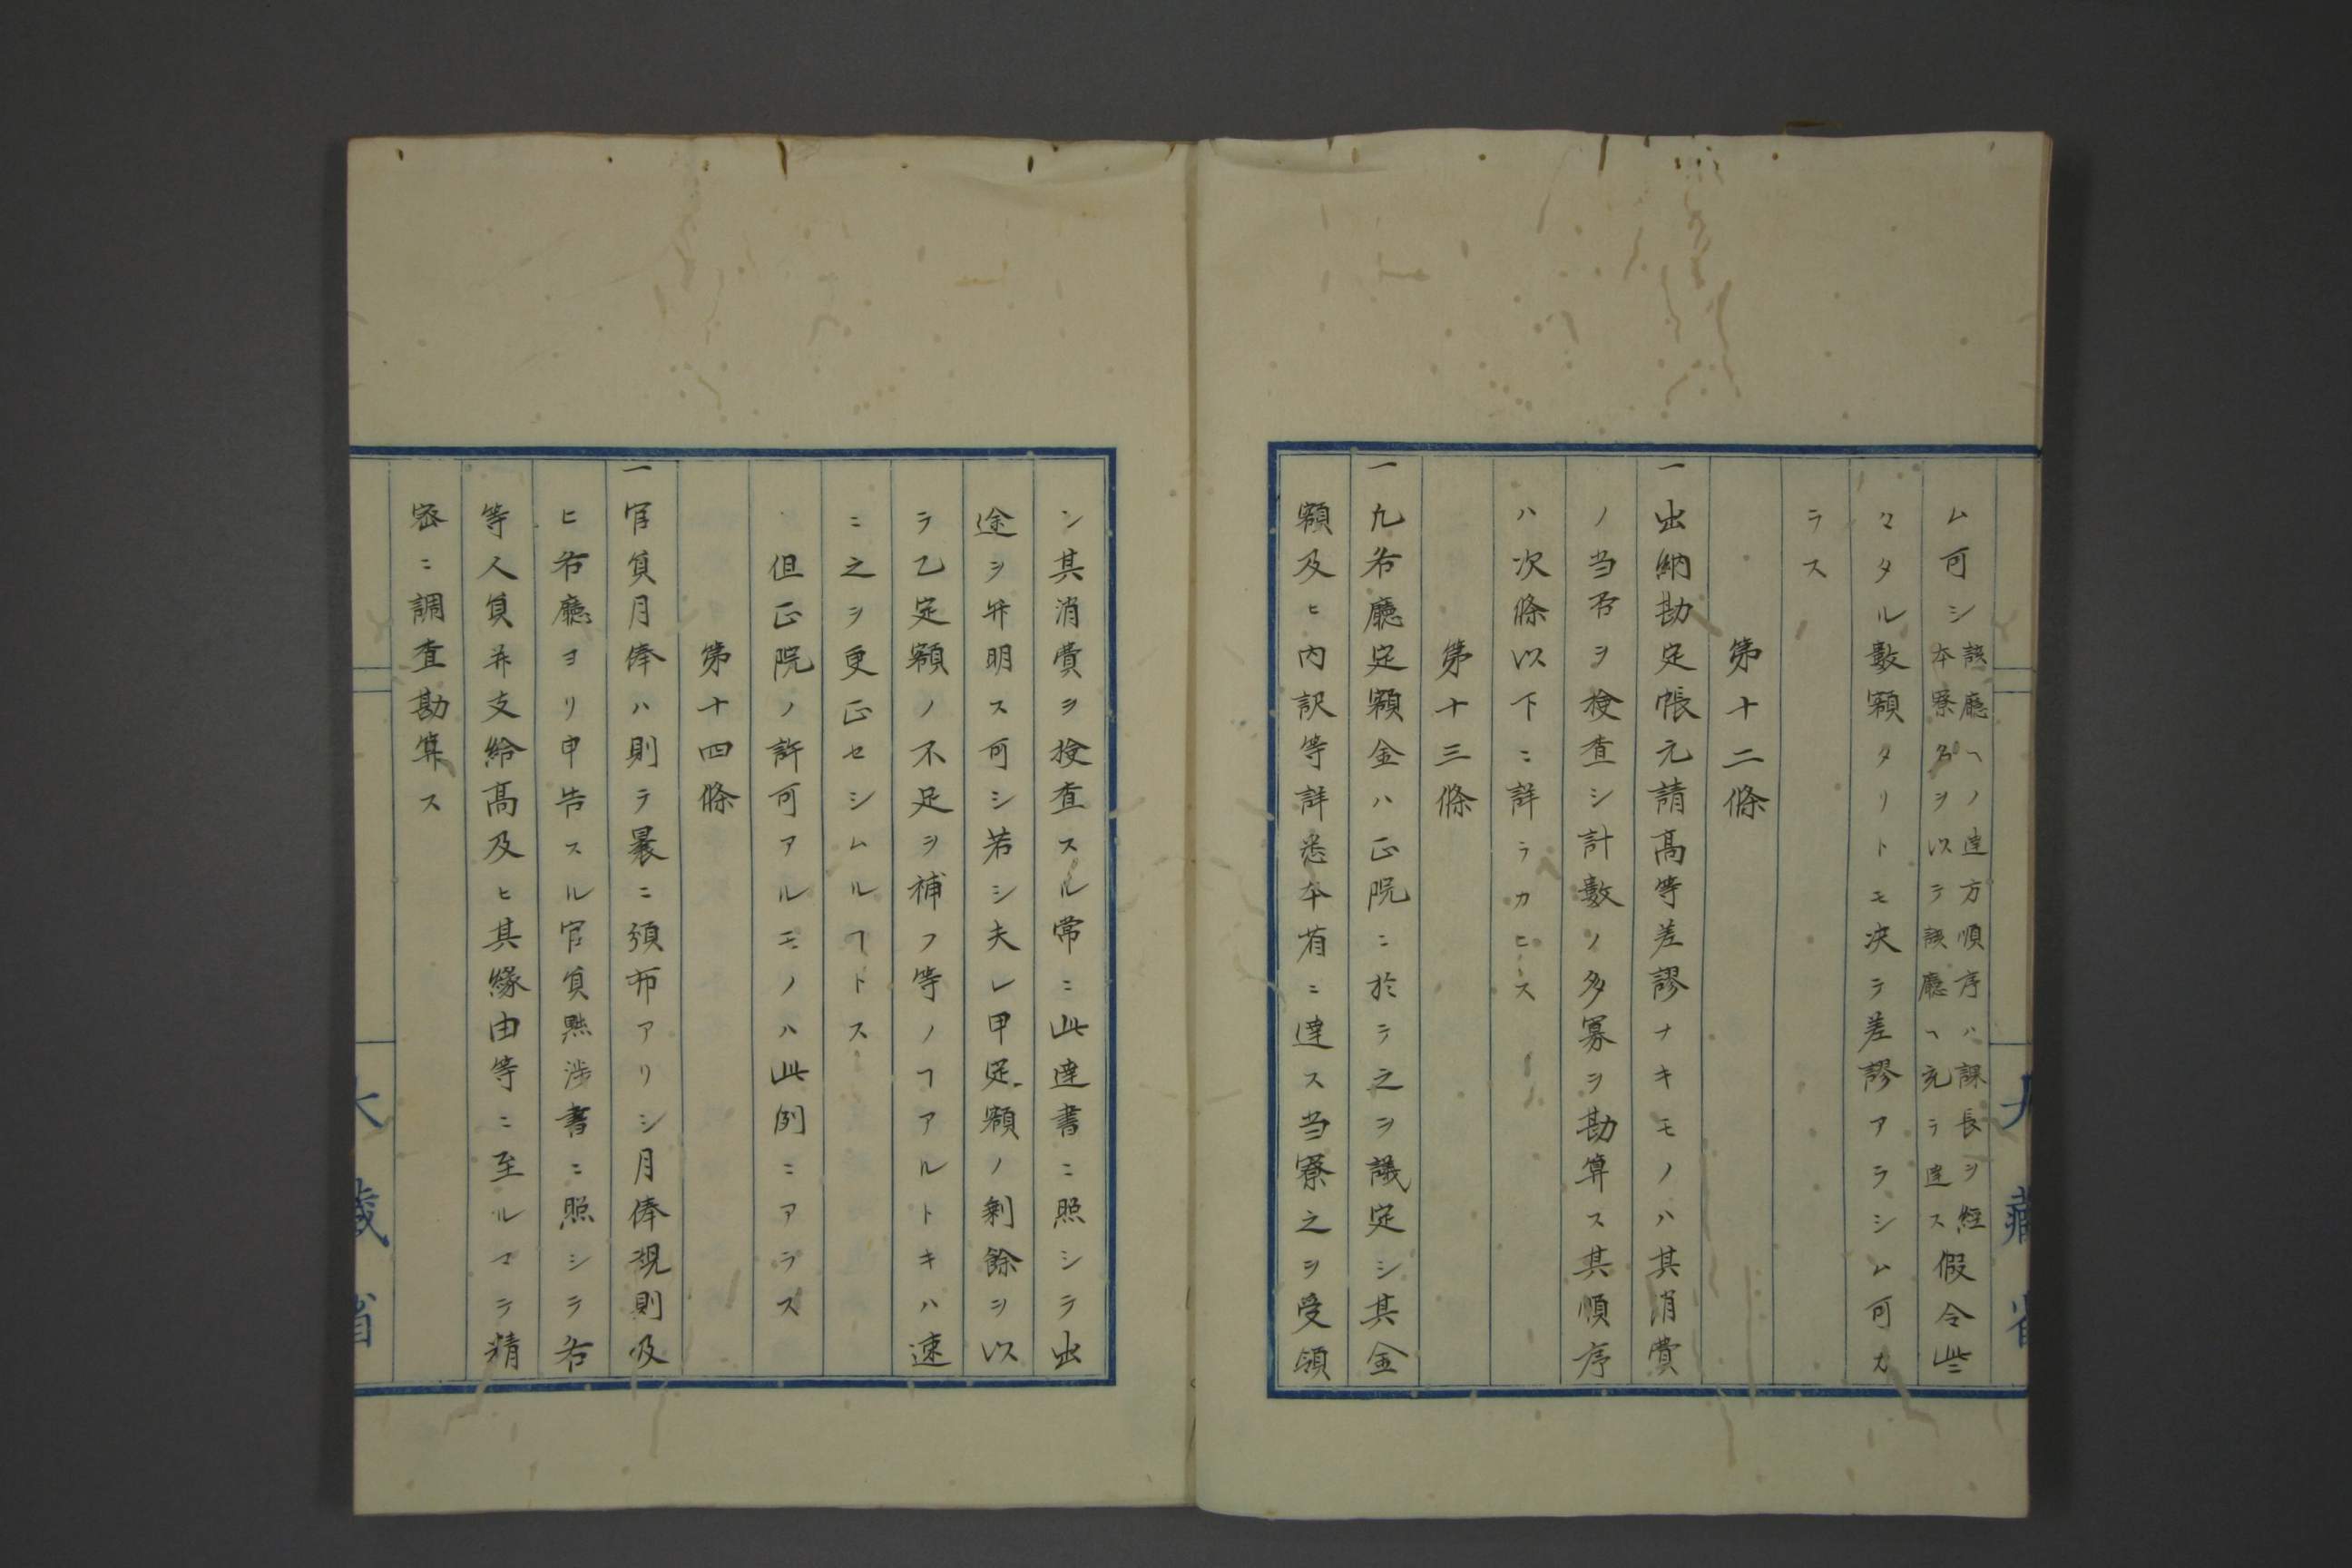 ム可シ該廳ヘノ達方順序ハ課長ヲ経
本寮名ヲ以テ該廳ヘ充テ達ス假令些
々タル數額タリトモ决テ差謬アラシム可カ
ラス
第十二條
一出納勘定帳元請高等差謬ナキモノハ其消費
ノ当否ヲ検査シ計數ノ多寡ヲ勘算ス其順序
ハ次條以下ニ詳ラカヒス
第十三條
一凡各廳定額金ハ正院ニ於テ之ヲ議定シ其金
額及ヒ内訳等詳悉本省ニ達ス当寮之ヲ受領
シ其消費ヲ検査スル常ニ此達書ニ照シテ出
途ヲ弁明ス可シ若シ夫レ甲定額ノ剰餘ヲ以
テ乙定額ノ不足ヲ補フ等ノヿアルトキハ速
ニ之ヲ更正セシムルヿトス
但正院ノ許可アルモノハ此例ニアラス
第十四條
一官員月俸ハ則テ曩ニ頒布アリシ月俸規則及
ヒ各廳ヨリ申告スル官員黜渉書ニ照シテ各
等人員并支給高及ヒ其縁由等ニ至ルマテ精
密ニ調査勘算ス
大藏省